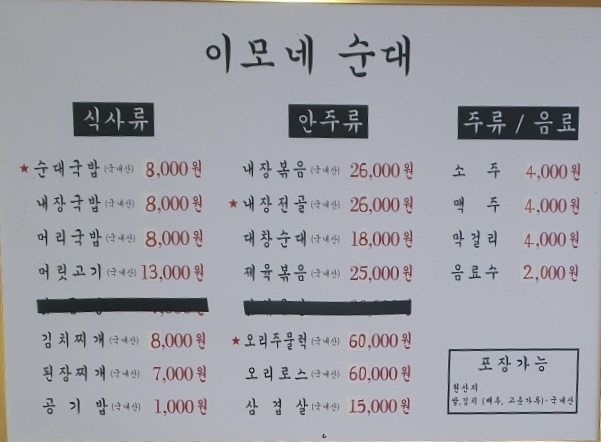 이모네 순대
식사류
★순대국밥(국내산) 8,000원
내장국밥(국내산) 8,000원
머리국밥(국내산) 8,000원
머릿고기(국내산) 13,000원
김치찌개(국내산) 8,000원
된장찌개(국내산) 7,000원
공기밥(국내산) 1,000원
안주류
내장볶음(국내산) 26,000원
★내장전골(국내산) 26,000원
대창순대(국내산) 18,000원
제육볶음(국내산) 25,000원
★오리주물럭(국내산) 60,000원
오리로스(국내산) 60,000원
삼겹살(국내산) 15,000원
주류/음료
소주 4,000원
맥주 4,000원
막걸리 4,000원
음료수 2,000원
포장가능
원산지
쌀,김치 (배추, 고춧가루)-국내산